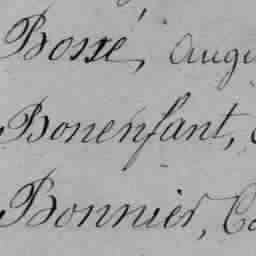 Bossé, Augu
Bonenfant,
Bonnier, Ca